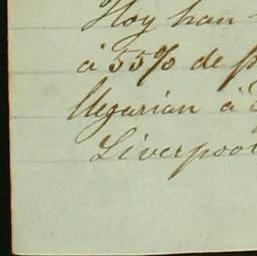 Hoy han
á 55% de
llegarian á
Liverpool